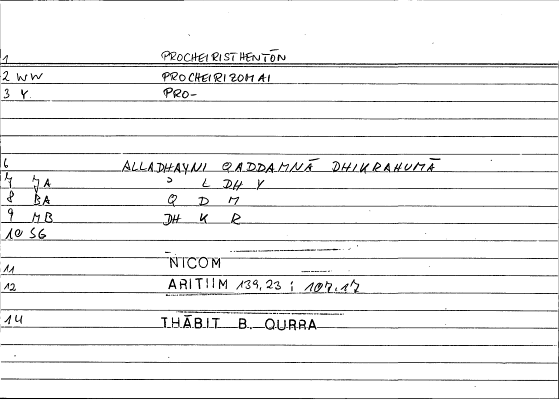 1 PROCHEIRISTHENTŌN
2 WW PROCHEIRIZOMAI
3 Y. PRO-
6 ALLADHAYNI QADDAMNĀ DHIKRAHUMĀ
7 JA ɔ L DH Y
8 BA Q D M
9 MB DH K R
10 SG
11 NICOM
12 ARITIIM 139,23 ; 107.17
14 THĀBIT B. QURRA